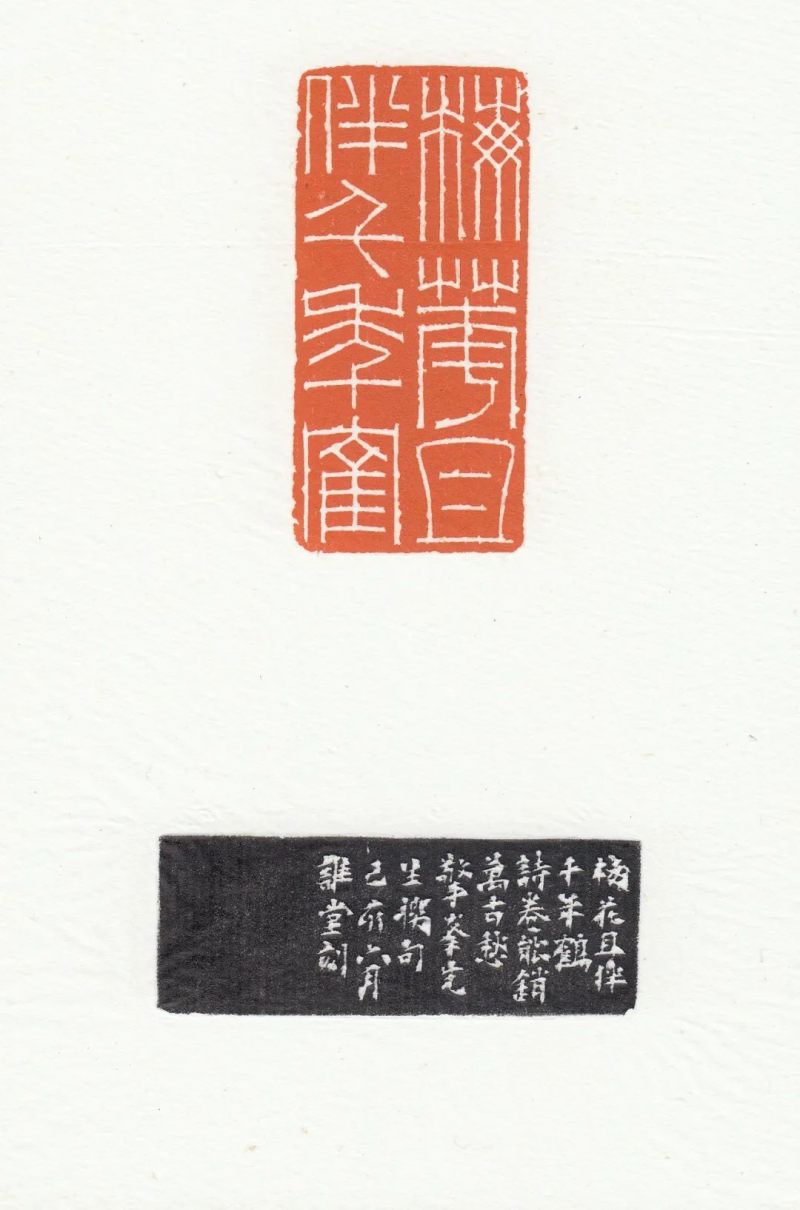 梅華且
伴千年隺
梅花且伴
千年鶴
詩卷能銷
萬古愁
擎峯先
生句
己亥六月
誰堂刻